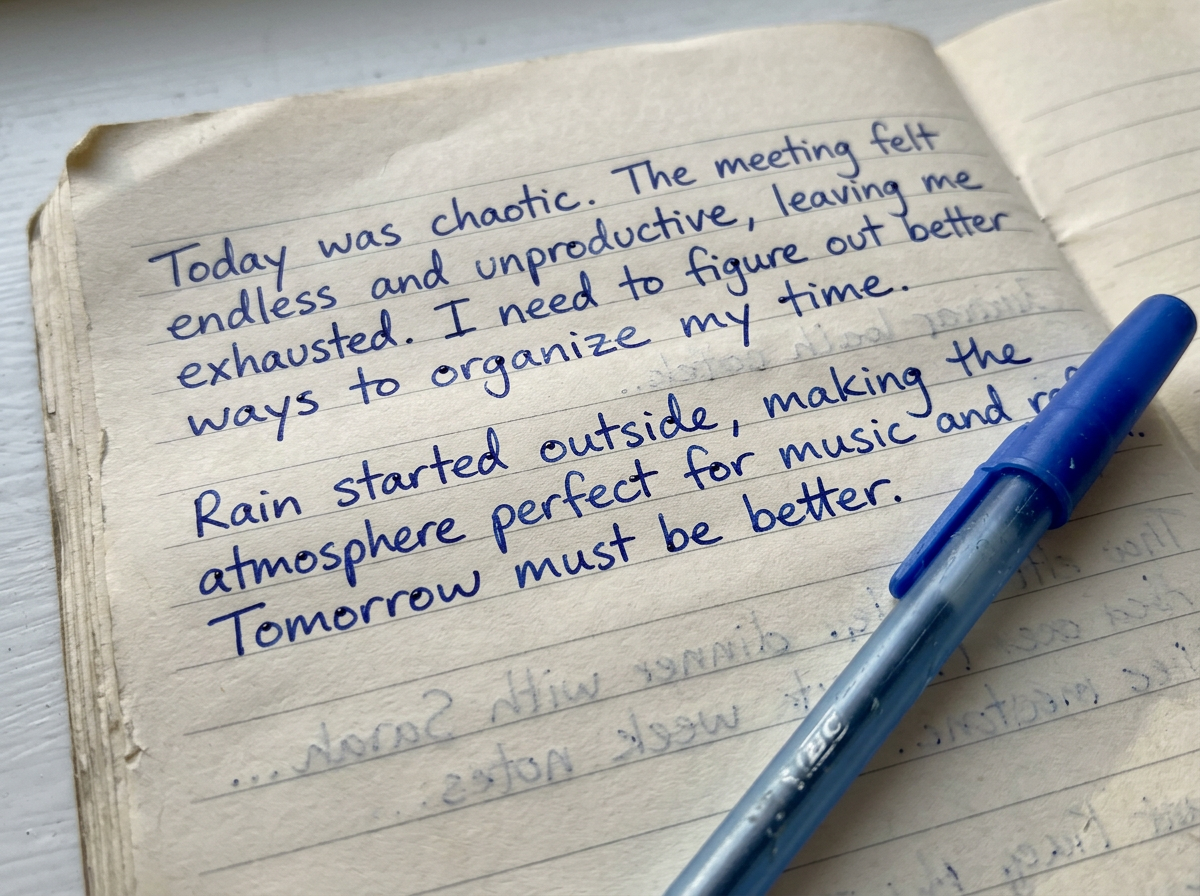 Today was chaotic. The meeting felt
endless and unproductive, leaving me
exhausted. I need to figure out better
ways to organize my time.
Rain started outside, making the
atmosphere perfect for music and
Tomorrow must be better.
dinner with Sarah...
week notes.
BIC